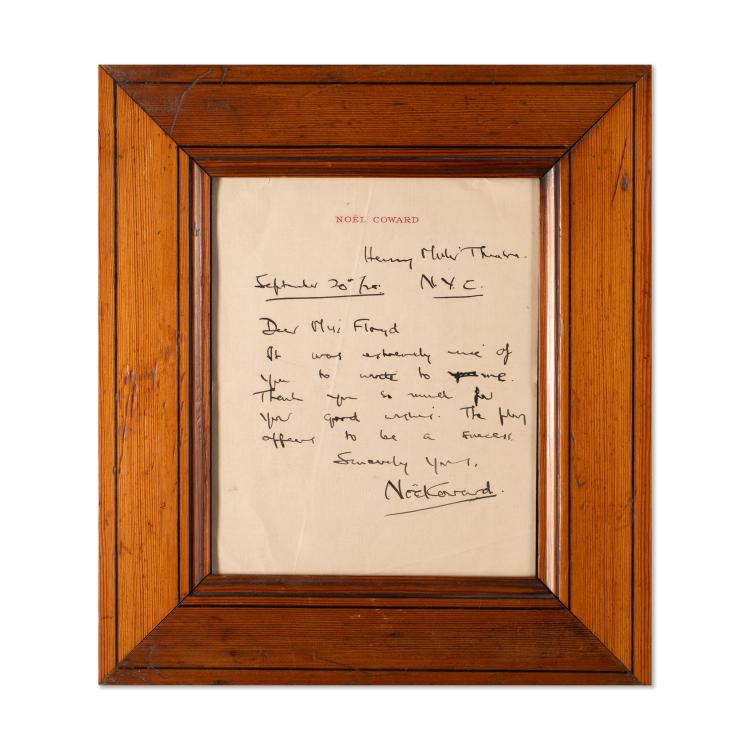 NOËL COWARD
Henry Miller Theatre.
September 20th/25.
N.Y.C.
Dear Miss Floyd
It was extremely nice of
you to write to me.
Thank you so much for
your good wishes. The play
appears to be a success.
Sincerely Yours,
Noël Coward.